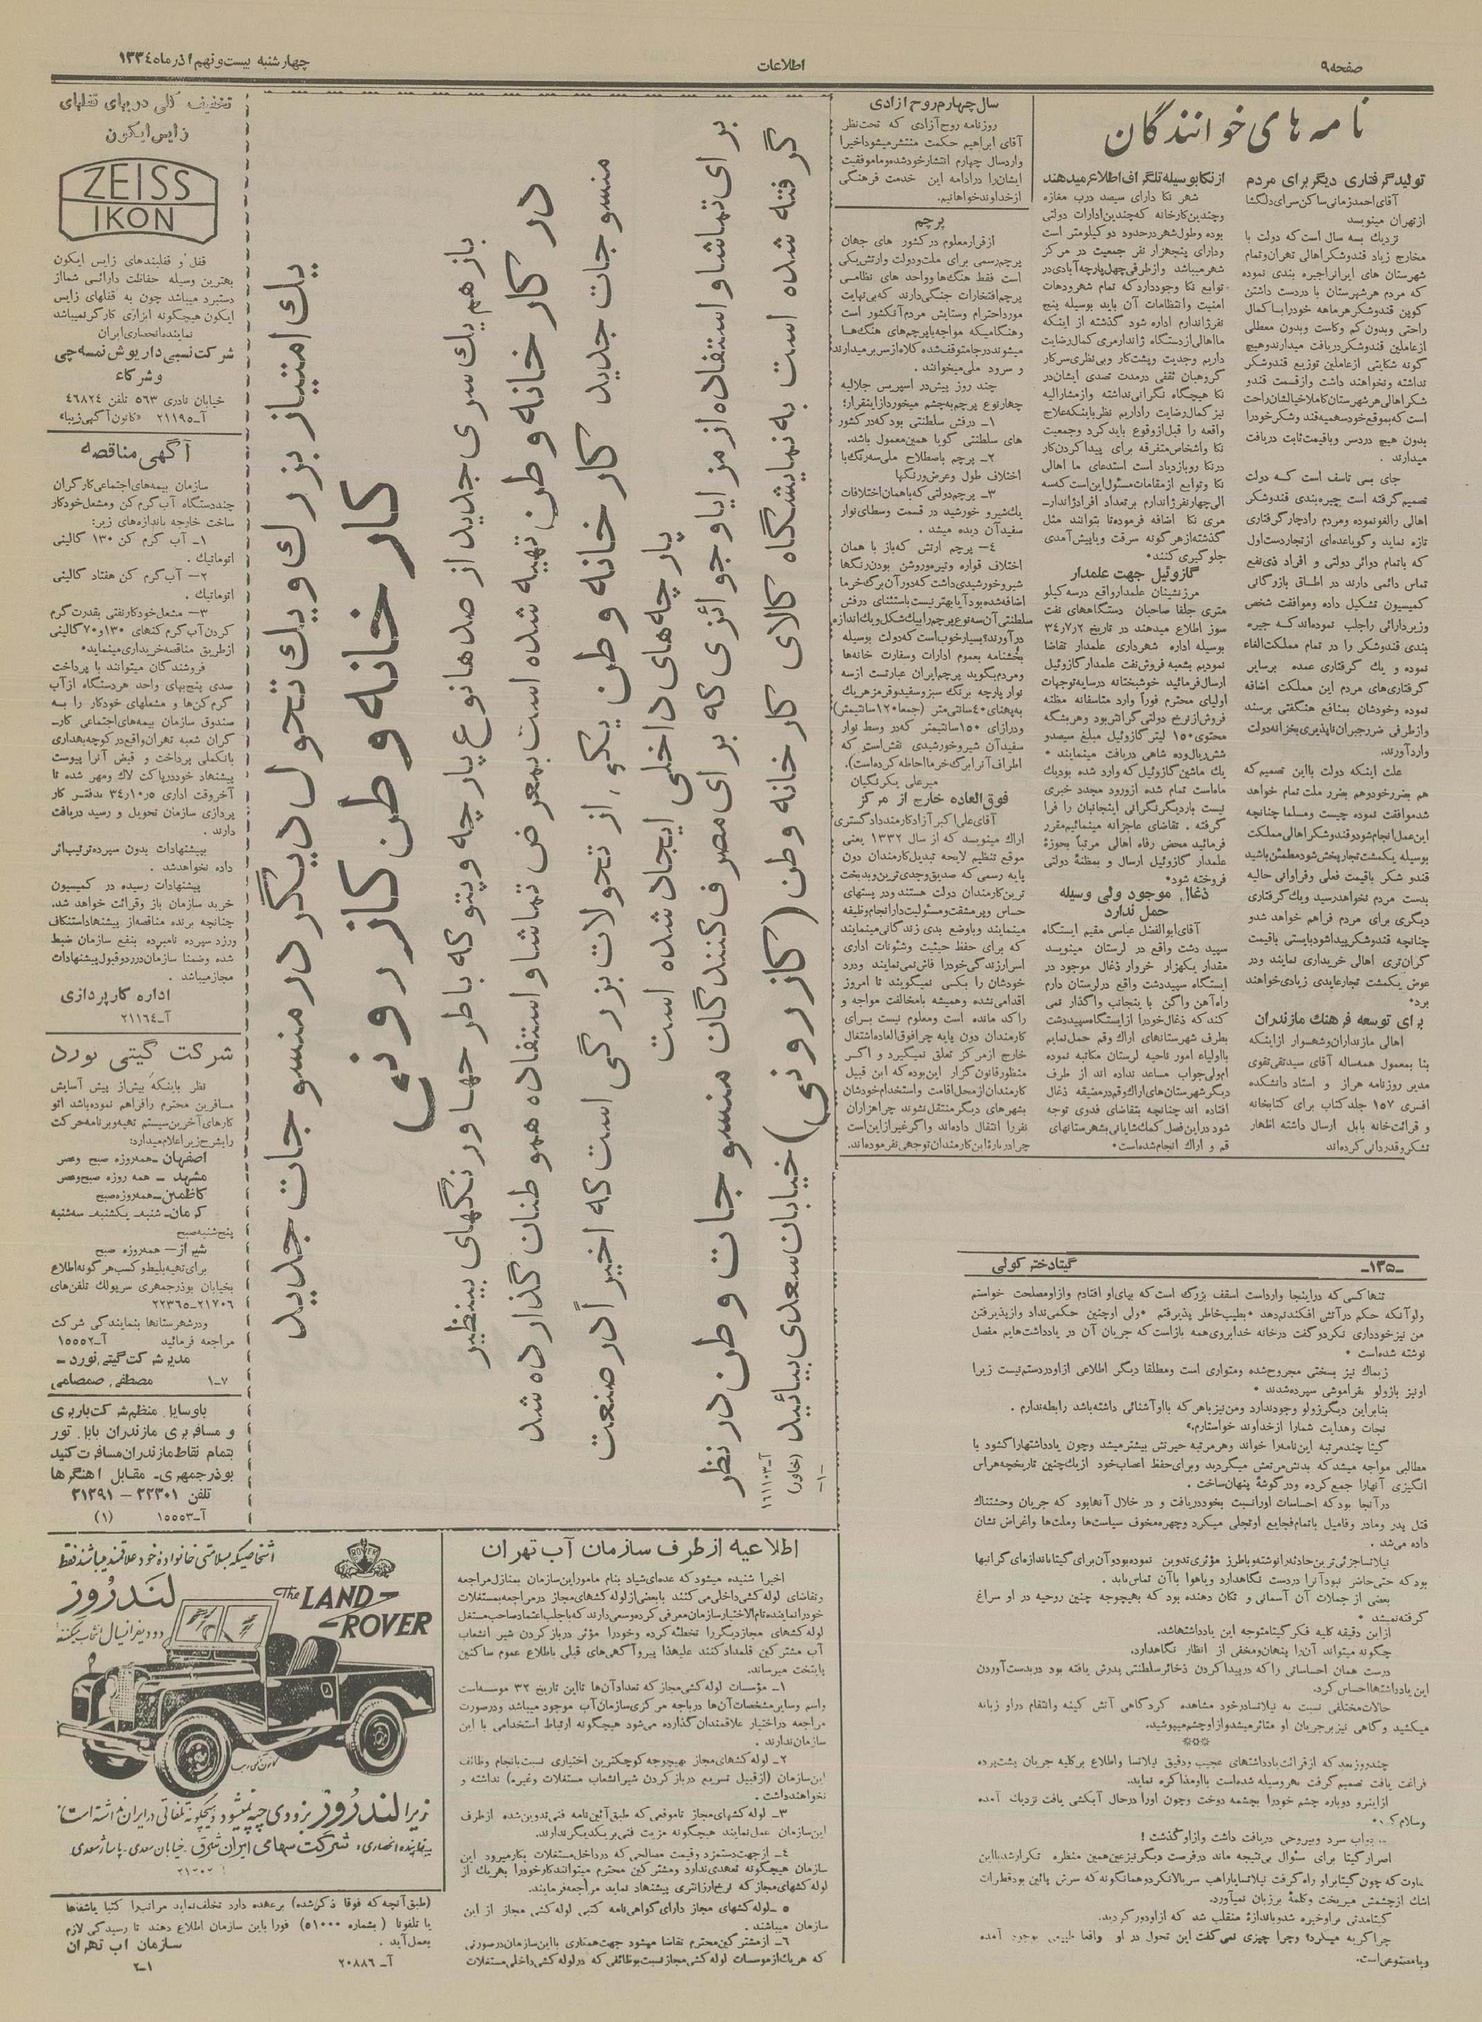 صفحه ۹
اطلاعات
چهارشنبه بیست و نهم آذر ماه ۱۳۳۴
نامه های خوانندگان
تولید گرفتاری دیگر برای مردم
آقای احمد زمانی ساکن سرای دلگشا
از تهران مینویسد
نزدیک بسه سال است که دولت با
مخارج زیاد قندوشکر اهالی تهران وتمام
شهرستان های ایران راجیره بندی نموده
که مردم هر شهرستان با در دست داشتن
کوپن قندوشکر هر ماهه خودرا با کمال
راحتی وبدون کم وکاست وبدون معطلی
از عاملین قندوشکر دریافت میدارند وهیچ
گونه شکایتی از عاملین توزیع قندوشکر
نداشته ونخواهند داشت واز قسمت قندو
شکر اهالی هر شهرستان کاملا خیالشان راحت
است که بموقع خود سهمیه قند وشکر خود را
بدون هیچ دردسر وباقیمت ثابت دریافت
میدارند .
جای بسی تاسف است کــه دولت
تصمیم گرفته است جیره بندی قندوشکر
اهالی را لغو نموده ومردم را دچار گرفتاری
تازه نماید وگویا عده ای از تجار دست اول
که باتمام دوائر دولتی و افراد ذی نفع
تماس دائمی دارند در اطـاق بازرگانی
کمیسیون تشکیل داده وموافقت شخص
وزیر دارائی را جلب نموده اند کــه جیره
بندی قندوشکر را در تمام مملکت الغاء
نموده و یك گرفتاری عمده برسایر
گرفتاری های مردم این مملکت اضافه
نموده وخودشان بمنافع هنگفتی برسند
واز طرفی ضرر جبران ناپذیری بخزانه دولت
وارد آورند.
علت اینکه دولت بااین تصمیم که
هم بضرر خود وهم بضرر ملت تمام خواهد
شد موافقت نموده چیست ومسلما چنانچه
این عمل انجام شود وقندوشکر اهالی مملکت
بوسیله یکمشت تجار پخش شود مطمئن باشید
قندو شکر باقیمت فعلی وفراوانی حالیه
بدست مردم نخواهد رسید ویك گرفتاری
دیگری برای مردم فراهم خواهد شدو
چنانچه قندوشکر پیدا شود بایستی باقیمت
گران تری اهالی خریداری نمایند ودر
عوض یکمشت تجار عایدی زیادی خواهند
برد»
برای توسعه فرهنك مازندران
اهالی مازندران و شهسوار از اینکه
بنا بمعمول همه ساله آقای سید تقی تقوی
مدیر روزنامه هراز و استاد دانشکده
افسری ۱۵۷ جلد کتاب برای کتابخانه
و قرائت خانه بابل ارسال داشته اظهار
تشکر و قدردانی کرده اند
از نکا بوسیله تلگراف اطلاع میدهند
شهر نکا دارای سیصد درب مغازه
وچندین کارخانه که چندین ادارات دولتی
بوده وطول شهر در حدود دو کیلومتر است
ودارای پنجهزار نفر جمعیت در مرکز
شهر میباشد وازطرفی چهل پارچه آبادی در
توابع نکا وجود دارد که تمام شهر ودهات
امنیت وانتظامات آن باید بوسیله پنج
نفر ژاندارم اداره شود گذشته از اینکه
ما اهالی از دستگاه ژاندارمری کمال رضایت
داریم وجدیت وپشت کار وبی نظری سرکار
گروهبان ثقفی در مدت تصدی ایشان در
نکا هیچگاه نگرانی نداشته واز مشارالیه
نیز کمال رضایت را داریم نظر باینکه علاج
واقعه را قبل از وقوع باید کرد وجمعیت
نکا واشخاص متفرقه برای پیدا کردن کار
در نکا رو بازدیاد است استدعای ما اهالی
نکا وتوابع از مقامات مسئول این است که سه
الی چهار نفر ژاندارم برتعداد افراد ژاندار-
مری نکا اضافه فرموده تا بتوانند مثل
گذشته از هرگونه سرقت وپیش آمدی
جلوگیری کنند»
گازوئیل جهت علمدار
مرز نشینان علمدار واقع در سه کیلو
متری جلفا صاحبان دستگاههای نفت
سوز اطلاع میدهند در تاریخ ۳۴٫۷٫۲
بوسیله اداره شهرداری علمدار تقاضا
نمودیم بشعبه فروش نفت علمدار گازوئیل
ارسال فرمائید خوشبختانه در سایه توجهات
اولیای محترم فوراً وارد متاسفانه مظنه
فروش از نرخ دولتی گرانتر بود وهر بشکه
محتوی ۱۵۰ لیتر گازوئیل مبلغ سیصدو
شش ریال وده شاهی دریافت مینمایند «
یك ماشین گازوئیل که وارد شده بود یك
ماه است تمام شده از ورود مجدد خبری
نیست بار دیگر نگرانی اینجانبان را فرا
گرفته . تقاضای عاجزانه مینمائیم مقرر
فرمائید محض رفاه اهالی مرتباً بحوزهٔ
علمدار گازوئیل ارسال و بمظنهٔ دولتی
فروخته شود»
ذغال موجود ولی وسیله
حمل ندارد
آقای ابوالفضل عباسی مقیم ایستگاه
سپید دشت واقع در لرستان مینویسد
مقدار یکهزار خروار ذغال موجود در
ایستگاه سپیددشت واقع درلرستان دارم
راه آهن واگن با ینجانب واگذار نمی
کند که ذغال خود را از ایستگاه سپیددشت
بطرف شهرستانهای اراك وقم حمل نمایم
بااولیاء امور ناحیه لرستان مکاتبه نموده
ام ولی جواب مساعد نداده اند از طرف
دیگر شهرستان های اراك وقم درمضیقه ذغال
افتاده اند چنانچه بتقاضای فدوی توجه
شود دراین فصل کمك شایانی بشهرستانهای
قم و اراك انجام شده است»
سال چهارم روح آزادی
روزنامه روح آزادی که تحت نظر
آقای ابراهیم حکمت منتشر میشود اخیرا
وارد سال چهارم انتشار خود شده و ما موفقیت
ایشان را در ادامه این خدمت فرهنگی
از خداوند خواهانیم.
پرچم
از قرار معلوم در کشور های جهان
پرچم رسمی برای ملت ودولت وارتش یکی
است فقط هنگ ها وواحد های نظامــی
پرچم افتخارات جنگی دارند که بی نهایت
مورد احترام وستایش مردم آن کشور است
وهنگامیکه مواجه با پرچم های هنگ ها
میشوند در جا متوقف شده کلاه از سر بر میدارند
و سرود ملی میخوانند .
چند روز پیش در اسپریس جلالیه
چهار نوع پرچم به چشم میخورد از اینقرار؛
۱ـ درفش سلطنتی بود که در کشور
های سلطنتی گویا همین معمول باشد.
۲ـ پرچم باصطلاح ملی سه رنگ با
اختلاف طول وعرض ورنگها
۳ـ پرچم دولتی که باهمان اختلافات
یك شیر و خورشید در قسمت وسط ای نوار
سفید آن دیده میشد .
٤ـ پرچم ارتش که باز با همان
اختلاف قواره وتیره وروشن بودن رنگها
شیر وخورشیدی داشت که دور آن برگ خرما
اضافه شده بود آیا بهتر نیست باستثنای درفش
سلطنتی آن سه نوع پرچم را بیك شکل ویك اندازه
در آورند؟ بسیار خوب است که دولت بوسیله
بخشنامه بعموم ادارات وسفارت خانه ها
ومردم بگوید پرچم ایران عبارتست از سه
نوار پارچه برنگ سبز وسفید وقرمز هر یك
به پهنای ٤۰ سانتی متر (جمعا ۱۲۰ سانتیمتر)
و درازای ۱۵۰ سانتیمتر که در وسط نوار
سفید آن شیر وخورشیدی نقش است که
اطراف آنرا برگ خرما احاطه کرده است).
میر علی یکرنگیان
فوق العاده خارج از مرکز
آقای علی اکبر آزاد کارمند دادگستری
اراك مینویسد که از سال ۱۳۳۲ یعنی
موقع تنظیم لایحه تبدیل کارمندان دون
پایه رسمی که صدیق و جدی ترین وبد بخت
ترین کارمندان دولت هستند ودر پستهای
حساس وپر مشقت ومسئولیت دار انجام وظیفه
مینمایند وباوضع بدی زندگانی مینمایند
که برای حفظ حیثیت وشئونات اداری
اسرار زندگی خودرا فاش نمی نمایند ودرد
خودشان را بکسی نمیگویند تا امروز
اقدامی نشده وهمیشه بامخالفت مواجه و
راکد مانده است ومعلوم نیست بــرای
کارمندان دون پایه چرا فوق العاده اشتغال
خارج از مرکز تعلق نمیگیرد و اگــر
منظور قانون گزار این بوده که این قبیل
کارمندان از محل اقامت واستخدام خودشان
بشهر های دیگر منتقل نشوند چرا هزاران
نفر را انتقال داده اند واگر غیر از این است
چرا در بارهٔ این کارمندان توجهی نفرموده اند.
یك امتیاز بزرك و یك تحول دیگر در منسوجات جدید
کارخانه وطن کازرونی
باز هم یك سری جدید از صدها نوع پارچه و پتو که با طرحها و رنگهای بینظیر
در کارخانه وطن تهیه شده است بمعرض تماشا و استفاده هموطنان گذارده شد
منسوجات جدید کارخانه وطن یکی از تحولات بزرگی است که اخیراً در صنعت
پارچه های داخلی ایجاد شده است
برای تماشا و استفاده از مزایا و جوائزی که برای مصرف کنندگان منسوجات وطن در نظر
گرفته شده است به نمایشگاه کالای کارخانه وطن (کازرونی) خیابان سعدی بیائید
(خاور)
آ-۱۶۱۱۰۳
-۱-
تخفیف کلی در بهای قفلهای
زایس ایکون
ZEISS
IKON
قفل و قفلبندهای زایس ایکون
بهترین وسیله حفاظت دارائی شما از
دستبرد میباشد چون به قفلهای زایس
ایکون هیچگونه ابزاری کارگر نمیباشد
نماینده انحصاری ایران
شرکت نسبی داریوش نمسه چی
وشرکاء
خیابان نادری ۵۶۳ تلفن ۴۶۸۲۴
آـ۲۱۱۹۵ «کانون آگهی زیبا»
آگهی مناقصه
سازمان بیمه های اجتماعی کارگران
چند دستگاه آب گرم کن ومشعل خودکار
ساخت خارجه باندازه های زیر:
۱ـ آب گرم کن ۱۳۰ گالینی
اتوماتیك .
۲ـ آب گرم کن هفتاد گالینی
اتوماتیك .
۳ـ مشعل خودکار نفتی بقدرت گرم
کردن آب گرم کنهای ۱۳۰و۷۰ گالینی
از طریق مناقصه خریداری مینماید»
فروشندگان میتوانند با پرداخت
صدی پنج بهای واحد هر دستگاه از آب
گرم کن ها و مشعلهای خودکار را بــه
صندوق سازمان بیمه های اجتماعی کار-
گران شعبه تهران واقع در کوچه بهداری
بانک ملی پرداخت و قبض آنرا پیوست
پیشنهاد خود در پاکت لاك ومهر شده تا
آخر وقت اداری ۳۴٫۱۰٫۵ بدفتر کار
پردازی سازمان تحویل و رسید دریافت
دارند .
بپیشنهادات بدون سپرده ترتیب اثر
داده نخواهد شد .
پیشنهادات رسیده در کمیسیون
خرید سازمان باز وقرائت خواهد شد.
چنانچه برنده مناقصه از پیشنهاد استنکاف
ورزد سپرده نامبرده بنفع سازمان ضبط
شده وضمنا سازمان در رد و قبول پیشنهادات
مجاز میباشد .
اداره کارپردازی
آـ۲۱۱۶٤
شرکت گیتی نورد
نظر باینکه بیش از پیش آسایش
مسافرین محترم را فراهم نموده باشد اتو
کارهای آخرین سیستم تهیه و برنامه حرکت
را بشرح زیر اعلام میدارد:
اصفهان ـ همه روزه صبح وعصر
مشهد ـ همه روزه صبح وعصر
کاظمین ـ همه روزه صبح
کرمان ـ شنبه ـ یکشنبه ـ سه شنبه
پنج شنبه صبح
شیراز ـ همه روزه صبح
برای تهیه بلیط و کسب هرگونه اطلاع
بخیابان بوذرجمهری سرپولك تلفن های
۲۱۷۰۶ـ۲۲۳۶۵
ودر شهرستانها بنمایندگی شرکت
مراجعه فرمائید آـ۱۵۵۵۲
مدیر شرکت گیتی نورد ـ
۷ـ۱ مصطفی صمصامی
باوسایل منظم شرکت باربری
و مسافربری مازندران بابل تور
بتمام نقاط مازندران مسافرت کنید
بوذرجمهری ـ مقابل آهنگرها
تلفن ۲۲۳۰۱ – ۲۱۲۹۱
آـ۱۵۵۵۳ (۱)
اشخاصیکه بسلامتی خانواده خود علاقمند میباشند فقط
لَندرُوِر
دو دیفرانسیال انتخاب میکنند
ROVER
The LAND-
ROVER
زیرا لندرُوِر بزودی چپه نمیشود و هیچگونه تلفاتی در ایران نداشته است.
نماینده انحصاری: شرکت سهامی ایران شرق ـ خیابان سعدی ـ پاساژ سعدی
اطلاعیه از طرف سازمان آب تهران
اخیرا شنیده میشود که عده ای شیاد بنام مامور این سازمان بمنازل مراجعه
وتقاضای لوله کشی داخلی می کنند یا بعضی از لوله کشهای مجاز در مراجعه بمستغلات
خود را نماینده تام الاختیار سازمان معرفی کرده وسعی دارند که باجلب اعتماد صاحب مستغل
لوله کشهای مجاز دیگر را تخطئه کرده وخود را مؤثر در باز کردن شیر انشعاب
آب مشترکین قلمداد کنند علیهذا پیرو آگهی های قبلی باطلاع عموم ساکنین
پایتخت میرساند.
۱ـ مؤسسات لوله کشی مجاز که تعداد آن ها تا این تاریخ ۳۲ موسسه است
واسم وسایر مشخصات آن ها درباجه مرکزی سازمان آب موجود میباشد ودرصورت
مراجعه دراختیار علاقمندان گذارده می شود هیچگونه ارتباط استخدامی با این
سازمان ندارند .
۲ـ لوله کشهای مجاز بهیچوجه کوچکترین اختیاری نسبت بانجام وظائف
این سازمان (از قبیل تسریع در باز کردن شیر انشعاب مستغلات وغیره) نداشته و
نخواهند داشت .
۳ـ لوله کشهای مجاز تا موقعی که طبق آئین نامه فنی تدوین شده ازطرف
این سازمان عمل نمایند هیچگونه مزیت فنی بر یکدیگر ندارند.
٤ـ از جهت دستمزد وقیمت مصالحی که در داخل مستغلات بکار میرود این
سازمان هیچگونه تعهدی ندارد ومشترکین محترم میتوانند کار خود را بهر یك از
لوله کشهای مجاز که نرخ ارزانتری پیشنهاد نماید مراجعه فرمایند.
۵ ـ لوله کشهای مجاز دارای گواهی نامه کتبی لوله کشی مجاز از این
سازمان میباشند .
۶ـ از مشترکین محترم تقاضا میشود جهت همکاری بااین سازمان درصورتی
که هریك از موسسات لوله کشی مجاز نسبت بوظائفی که در لوله کشی داخلی مستغلات
(طبق آنچه که فوقا ذکر شده) بر عهده دارد تخلف نماید مراتب را کتبا یا شفاها
یا تلفونا ( بشماره ۵۱۰۰۰) فورا باین سازمان اطلاع دهند تا رسیدگی لازم
بعمل آید .
سازمان آب تهران
آـ ۲۰۸۸۶
۲ـ۱
ـ۱۳۵ـ
گیتا دختر کولی
تنها کسی که در اینجا وارد است اسقف بزرك است که بپای او افتادم واز او مصلحت خواستم
ولو آنکه حکم در آتش افکندنم دهد «بطیب خاطر پذیرفتم «ولی او چنین حکمی نداد واز پذیرفتن
من نیز خودداری نکرد و گفت درخانه خدا بروی همه باز است که جریان آن در یادداشت هایم مفصل
نوشته شده است «
زیماك نیز بسختی مجروح شده ومتواری است ومطلقا دیگر اطلاعی از او در دستم نیست زیرا
او نیز بازولو بفراموشی سپرده شدند «
بنابراین دیگر زولو وجود ندارد ومن نیز باهر که با او آشنائی داشته باشد رابطه ندارم .
نجات وهدایت شما را از خداوند خواستارم.»
گیتا چند مرتبه این نامه را خواند وهر مرتبه حیرتش بیشتر میشد وچون یادداشتها را گشود با
مطالبی مواجه میشد که بدنش مرتعش میگردید وبرای حفظ اعصاب خود از یك چنین تاریخچه هراس
انگیزی آنهارا جمع کرده ودر گوشهٔ پنهان ساخت .
در آنجا بود که احساسات او را نسبت بخود دریافت و در خلال آنها بود که جریان وحشتناك
قتل پدر ومادر وفامیل باتمام فجایع او تجلی میکرد وچهره مخوف سیاست ها وملت ها واغراض نشان
داده می شد .
نیلانسا جزئی ترین حادثه را نوشته وباطرز مؤثری تدوین نموده بود وآن برای گیتا باندازه ای گرانبها
بود که حتی حاضر نبود آنرا در دست نگاهدارد ویا هوا با آن تماس یابد .
بعضی از جملات آن آسمانی و تکان دهنده بود که بهیچوجه چنین روحیه در او سراغ
گرفته نمیشد »
از این دقیقه کلیه فکر گیتا متوجه این یادداشتها شد.
چگونه میتواند آن را پنهان ومخفی از انظار نگاهدارد.
درست همان احساساتی را که در پیدا کردن ذخائر سلطنتی پدرش یافته بود در بدست آوردن
این یادداشتها احساس کرد.
حالات مختلفی نسبت به نیلانسا در خود مشاهده کرد گاهی آتش کینه وانتقام در او زبانه
میکشید و گاهی نیز بر جریان او متاثر میشد و از او چشم میپوشید.
***
چند روز بعد که از قرائت یادداشتهای عجیب ودقیق نیلانسا واطلاع بر کلیه جریان پشت پرده
فراغت یافت تصمیم گرفت بهر وسیله شده است با او مذاکره نماید.
از اینرو دوباره چشم خود را بچشمه دوخت وچون او را در حال آبکشی یافت نزدیك آمده
وسلام کرد «
جواب سرد وبیروحی دریافت داشت واز او گذشت !
اصرار گیتا برای سئوال بی نتیجه ماند در فرصت دیگر نیز عین همین منظره تکرار شد با این
تفاوت که چون گیتا براو راه گرفت نیلانسا یاراهب سر بالا نکرد وهمانگونه که سرش پائین بود قطرات
اشك از چشمش میریخت وکلمهٔ بر زبان نمیآورد.
گیتا مدتی بر او خیره شد و باندازهٔ منقلب شد که از او دور گردید.
چرا گریه میکرد؟ وچرا چیزی نمی گفت این تحول در او واقعا طبیعی بوجود آمده
ویا مصنوعی است.